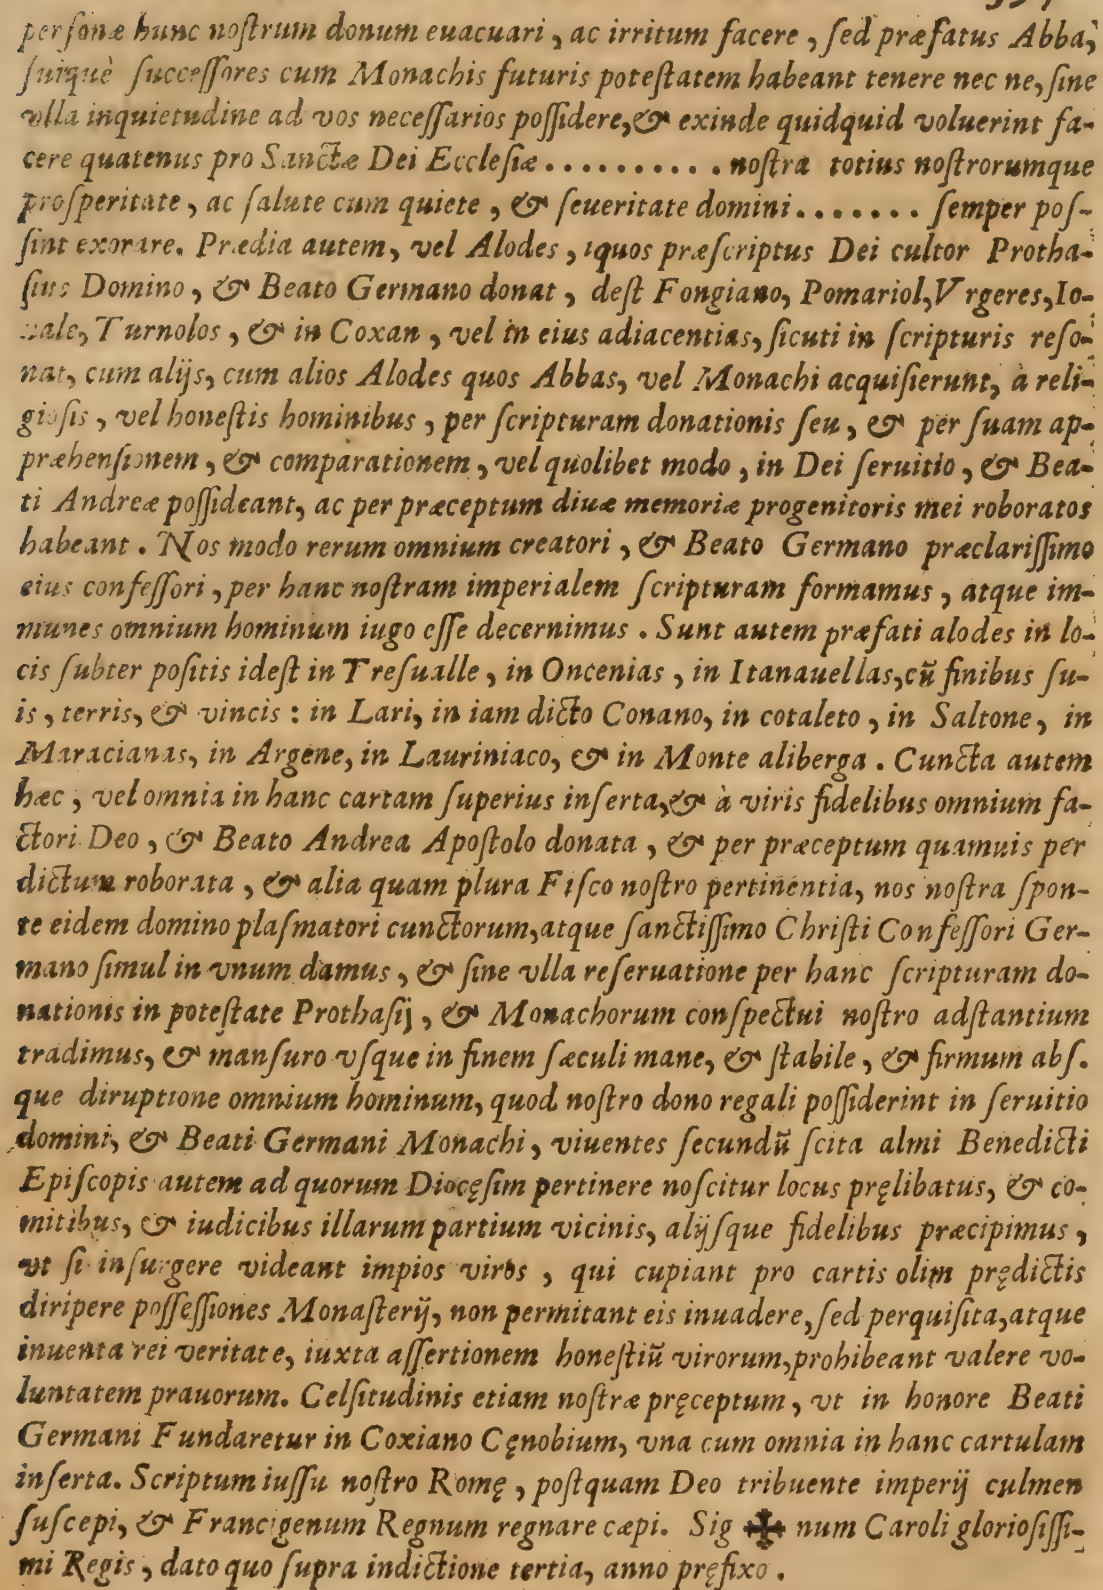 personæ hunc nostrum donum euacuari, ac irritum facere, sed præfatus Abba,
suiquè successores cum Monachis futuris potestatem habeant tenere nec ne, sine
vlla inquietudine ad vos necessarios possidere, & exinde quidquid voluerint fa-
cere quatenus pro Sanctæ Dei Ecclesiæ.......... nostra totius nostrorumque
prosperitate, ac salute cum quiete, & seueritate domini....... semper pos-
sint exorare. Prædia autem, vel Alodes, quos præscriptus Dei cultor Protha-
sius Domino, & Beato Germano donat, dest Fongiano, Pomariol, Vrgeres, Io-
uale, Turnolos, & in Coxan, vel in eius adiacentias, sicuti in scripturis reso-
nat, cum alijs, cum alios Alodes quos Abbas, vel Monachi acquisierunt, à reli-
giosis, vel honestis hominibus, per scripturam donationis seu, & per suam ap-
præhensionem, & comparationem, vel quolibet modo, in Dei seruitio, & Bea-
ti Andreæ possideant, ac per præceptum diuæ memoriæ progenitoris mei roboratos
habeant. Nos modo rerum omnium creatori, & Beato Germano præclarissimo
eius confessori, per hanc nostram imperialem scripturam formamus, atque im-
munes omnium hominum iugo esse decernimus. Sunt autem præfati alodes in lo-
cis subter positis idest in Tresualle, in Oncenias, in Itanauellas, cũ finibus su-
is, terris, & vincis: in Lari, in iam dicto Conano, in cotaleto, in Saltone, in
Maracianas, in Argene, in Lauriniaco, & in Monte aliberga. Cuncta autem
hæc, vel omnia in hanc cartam superius inserta, & à viris fidelibus omnium fa-
ctori Deo, & Beato Andrea Apostolo donata, & per præceptum quamuis per
dictum roborata, & alia quam plura Fisco nostro pertinentia, nos nostra spon-
te eidem domino plasmatori cunctorum, atque sanctissimo Christi Confessori Ger-
mano simul in vnum damus, & sine vlla reseruatione per hanc scripturam do-
nationis in potestate Prothasij, & Monachorum conspectui nostro adstantium
tradimus, & mansuro vsque in finem sæculi mane, & stabile, & firmum abs.
que diruptione omnium hominum, quod nostro dono regali possiderint in seruitio
domini, & Beati Germani Monachi, viuentes secundũ scita almi Benedicti
Episcopis autem ad quorum Diocęsim pertinere noscitur locus pręlibatus, & co-
mitibus, & iudicibus illarum partium vicinis, alijsque fidelibus præcipimus,
vt si insurgere videant impios viros, qui cupiant pro cartis olim prędictis
diripere possessiones Monasterij, non permitant eis inuadere, sed perquisita, atque
inuenta rei veritate, iuxta assertionem honestiũ virorum, prohibeant valere vo-
luntatem prauorum. Celsitudinis etiam nostræ pręceptum, vt in honore Beati
Germani Fundaretur in Coxiano Cęnobium, vna cum omnia in hanc cartulam
inserta. Scriptum iussu nostro Romę, postquam Deo tribuente imperij culmen
suscepi, & Francigenum Regnum regnare cæpi. Sig ✠ num Caroli gloriosissi-
mi Regis, dato quo supra indictione tertia, anno pręfixo.